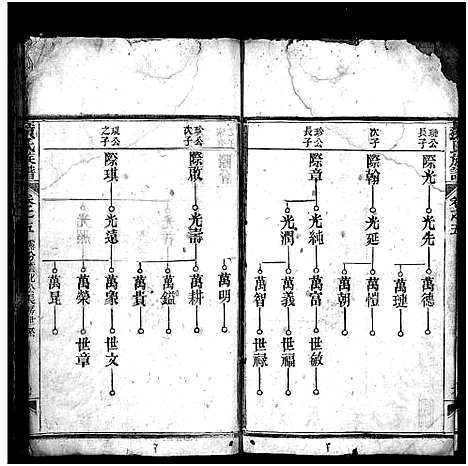 璉公
長子
際光
光先
萬德
萬璉
次子
際翰
光延
萬愷
萬朝
珍公
長子
際章
光純
光潤
萬富
萬義
萬智
世敏
世福
世禄
萬明
珍公
次子
際啟
光壽
萬耕
萬鎰
萬貴
琨公
之子
際琪
光遠
萬象
萬榮
萬昆
世文
世章
氏族譜
卷之五